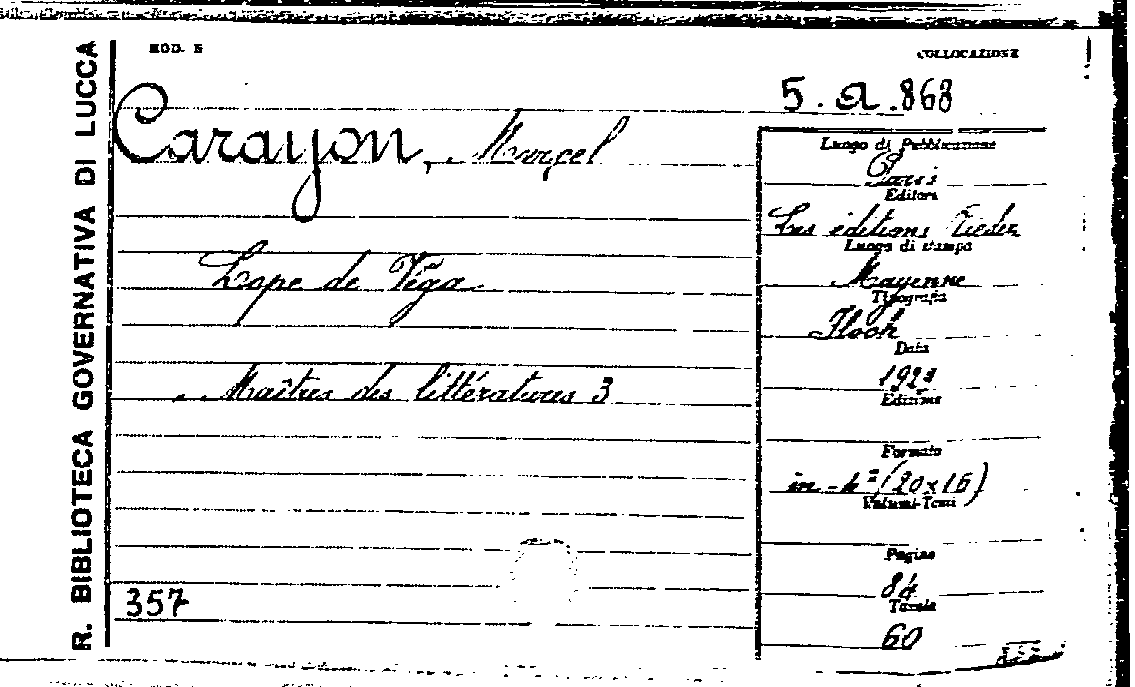 R. BIBLIOTECA GOVERNATIVA DI LUCCA
MOD. E
COLLOCAZIONE
5. a. 868
Carayon, Marcel
Lope de Véga
Maîtres des littératures 3
357
Luogo di Pubblicazione
Paris
Editore
Les éditions Rieder
Luogo di stampa
Mayenne
Tipografia
Floch
Data
Edizione
Formato
in-4° (20x16)
Volumi-Tomi
Pagine
84
Tavole
60